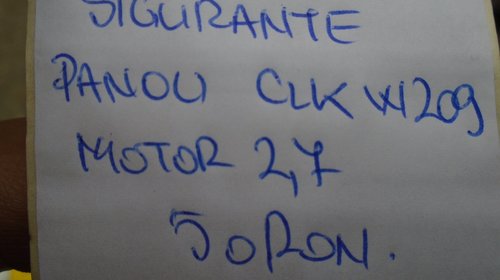 SIGURANTE
PANOU CLK W209
MOTOR 2,7
50 RON.